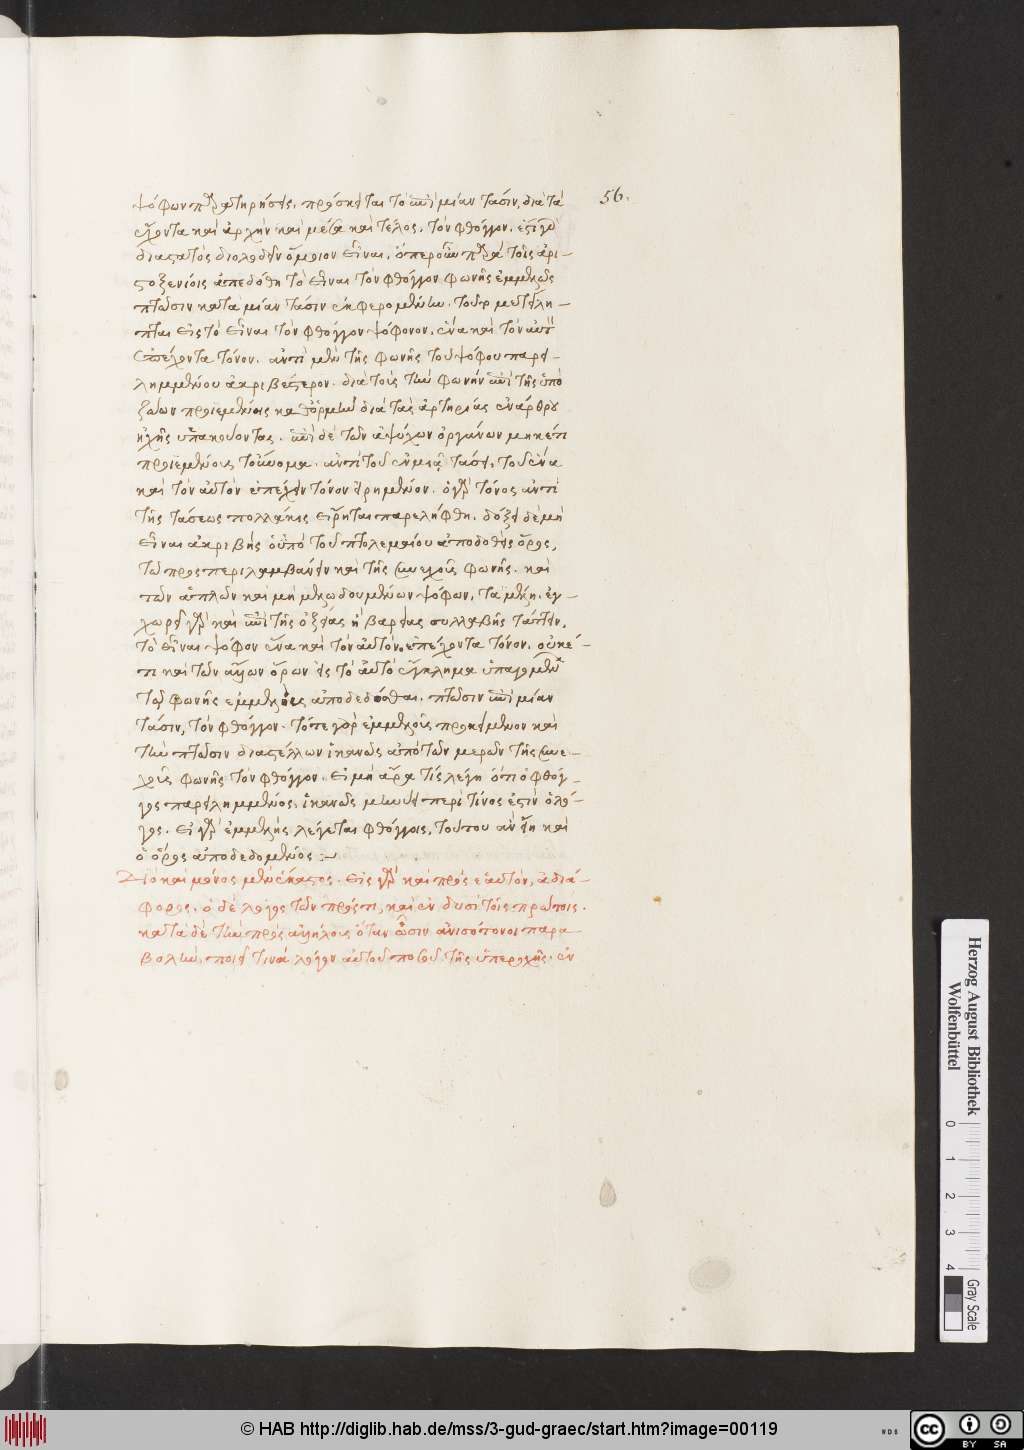 ψόφων παρατηρήσει. πρόσκειται τὸ ἐπὶ μίαν τάσιν, διὰ τὰ 56.
ἔχοντα καὶ ἀρχὴν καὶ μέσα καὶ τέλος. τὸν φθόγγον.
διαστατὸς διόλου δεῖν ὅμοιον εἶναι. ὅπερ οὖν παρὰ τοῖς ἀρι-
στοξενείοις ἀπεδόθη τὸ εἶναι τὸν φθόγγον φωνῆς ἐμμελῶς
πτῶσιν κατὰ μίαν τάσιν ἐκφερομένην. τοῦτο μετείλη-
πται εἰς τὸ εἶναι τὸν φθόγγον ψόφον ἕνα καὶ τὸν αὐτὸν
ἐπέχοντα τόνον. ἀντὶ μὲν τῆς φωνῆς τοῦ ψόφου παρει-
λημμένου ἀκριβέστερον. διὰ τοὺς τὴν φωνὴν ἐπὶ τῆς ὑπὸ
ζώων προϊεμένοις καθ' ὁρμὴν διὰ τὰς ἀρτηρίας ἐνάρθρου
ἠχῆς ὑπακούοντας. ἐπὶ δὲ τῶν ἀψύχων ὀργάνων μηκέτι
προϊεμένους τοὔνομα. ἀντὶ τοῦ ἐν μιᾷ τάσει, τοῦ ἕνα
καὶ τὸν αὐτὸν ἐπέχειν τόνον εἰρημένον. ὁ γὰρ τόνος ἀντὶ
τῆς τάσεως πολλάκις εἴρηται παρελήφθη. δόξει δὲ μὴ
εἶναι ἀκριβὴς ὁ ὑπὸ τοῦ πτολεμαίου ἀποδοθεὶς ὅρος,
τῷ προσπεριλαμβάνειν καὶ τῆς συνεχοῦς φωνῆς. καὶ
τῶν ἁπλῶν καὶ μὴ μελῳδουμένων ψόφων, τὰ μέλη. ἐγ-
χωρεῖ γὰρ καὶ ἐπὶ τῆς ὀξείας ἢ βαρείας συλλαβῆς τάττειν,
τὸ εἶναι ψόφον ἕνα καὶ τὸν αὐτὸν ἐπέχοντα τόνον. οὐκέ-
τι καὶ τῶν ἄλλων ὅρων εἰς τὸ αὐτὸ ἔγκλημα ὑπαγομένων
τοῦ φωνῆς ἐμμελοῦς ἀποδεδόσθαι. πτῶσιν ἐπὶ μίαν
τάσιν, τὸν φθόγγον. τό τε γὰρ ἐμμελοῦς προκείμενον καὶ
τὴν πτῶσιν διαστέλλων ἱκανῶς ἀπὸ τῶν μερῶν τῆς συνε-
χοῦς φωνῆς τὸν φθόγγον. εἰ μὴ ἄρα τις λέγῃ ὅτι ὁ φθόγ-
γος παρειλημμένος, ἱκανῶς μηνύει περὶ τίνος ἐστὶν ὁ λό-
γος. εἰ γὰρ ἐμμελὴς λέγεται φθόγγος, τούτου ἂν εἴη καὶ
ὁ ὅρος ἀποδεδομένος :~
Διὸ καὶ μόνος μὲν ἕκαστος. εἷς γὰρ καὶ πρὸς ἑαυτὸν, ἀδιά-
φορος. ὁ δὲ λόγος τῶν πρός τι, καὶ ἐν δυσὶ τοῖς πρώτοις.
κατὰ δὲ τὴν πρὸς ἀλλήλους ὅταν ὦσιν ἀνισότονοι παρα
βολὴν, ποιεῖ τινὰ λόγον ἐκ τοῦ ποσοῦ τῆς ὑπεροχῆς. ἐν
Herzog August Bibliothek
Wolfenbüttel
0 1 2 3 4
Gray Scale
© HAB http://diglib.hab.de/mss/3-gud-graec/start.htm?image=00119
WDB
cc BY SA